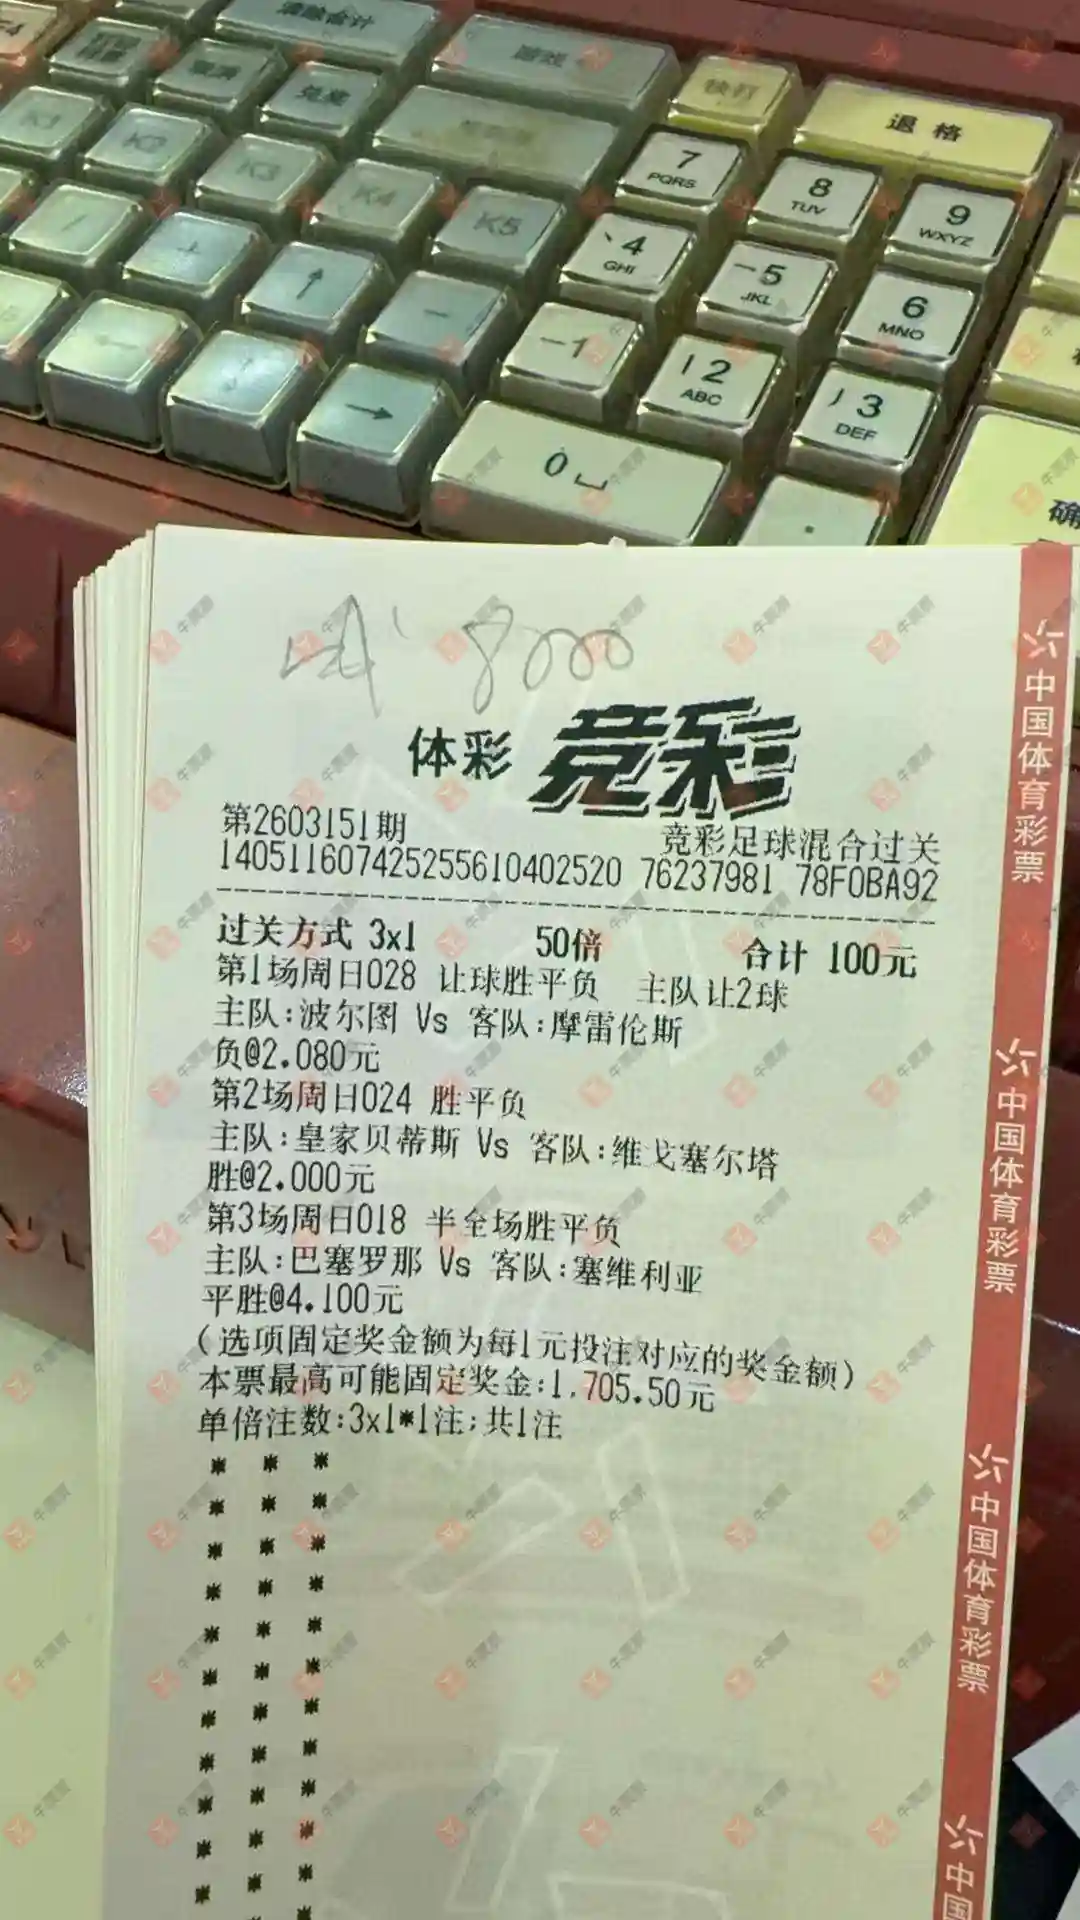 清除合计
兑奖
快打
退 格
K3
K2
K3
K4
K5
7
PQRS
8
TUV
9
WXYZ
、4
GHI
一5
JKL
6
MNO
一1
丨2
ABC
丿3
DEF
0
.
确
8000
体彩 竞彩
第2603151期
竞彩足球混合过关
140511607425255610402520 76237981 78F0BA92
过关方式 3x1 50倍 合计 100元
第1场周日028 让球胜平负 主队让2球
主队:波尔图 Vs 客队:摩雷伦斯
负@2.080元
第2场周日024 胜平负
主队:皇家贝蒂斯 Vs 客队:维戈塞尔塔
胜@2.000元
第3场周日018 半全场胜平负
主队:巴塞罗那 Vs 客队:塞维利亚
平胜@4.100元
(选项固定奖金额为每1元投注对应的奖金额)
本票最高可能固定奖金:1,705.50元
单倍注数:3x1*1注;共1注
中国体育彩票
中国体育彩票
中国体育彩票
中国